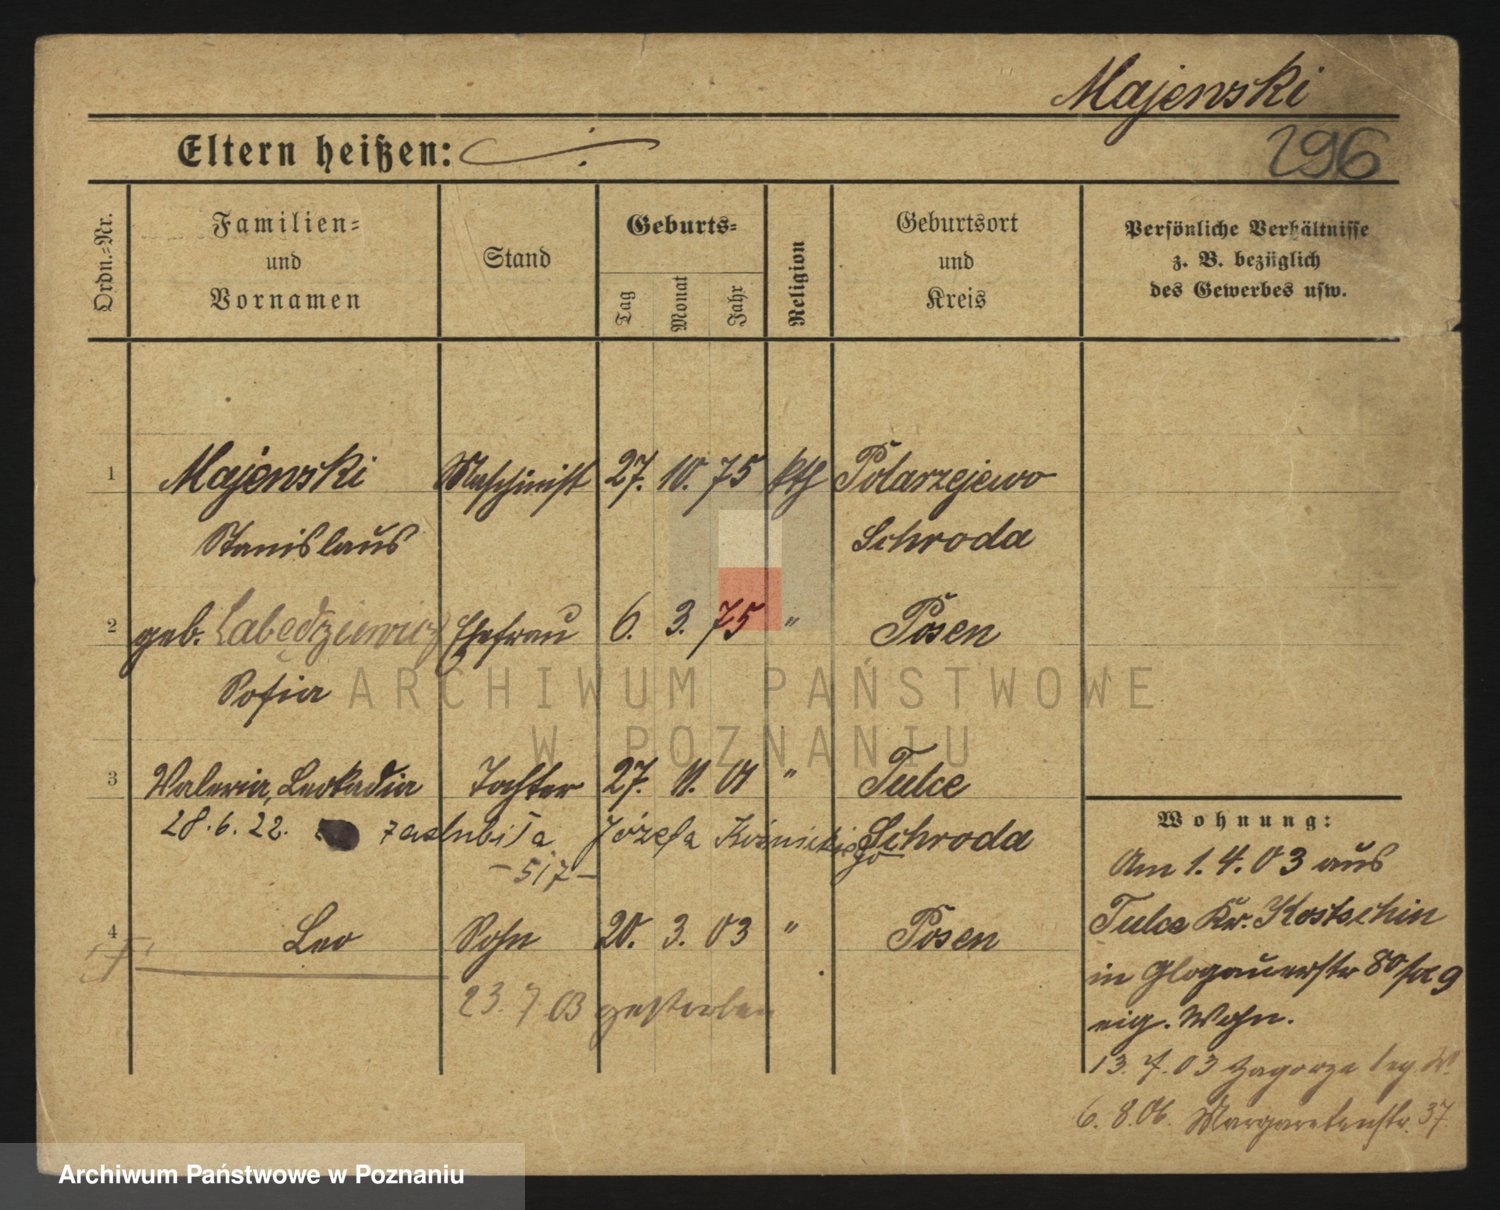 Majewski
Eltern heißen:
296
Ordn.-Nr.
Familien-
und
Vornamen
Stand
Geburts-
Tag
Monat
Jahr
Religion
Geburtsort
und
Kreis
Persönliche Verhältnisse
z. B. bezüglich
des Gewerbes usw.
1 Majewski Maschinist 27. 10. 75 kth Polarzejewo
Stanislaus Schroda
2 geb. Łabędziewicz Ehefrau 6. 3. 75 " Posen
Sofia
ARCHIWUM PAŃSTWOWE
W POZNANIU
3 Valeria, Leokadia Tochter 27. 11. 01 " Tulce
28.6.22. zaślubiła Józefa Schroda
-517-
4 Leo Sohn 20. 3. 03 " Posen
23. 7. 03 gestorben
Wohnung:
Am 1.4.03 aus
Tulce Kr. Kostschin
in Glogauerstr 80
eig. Wohn.
13. 7. 03 Zagorze
6. 8. 06. Margaretenstr. 37
Archiwum Państwowe w Poznaniu